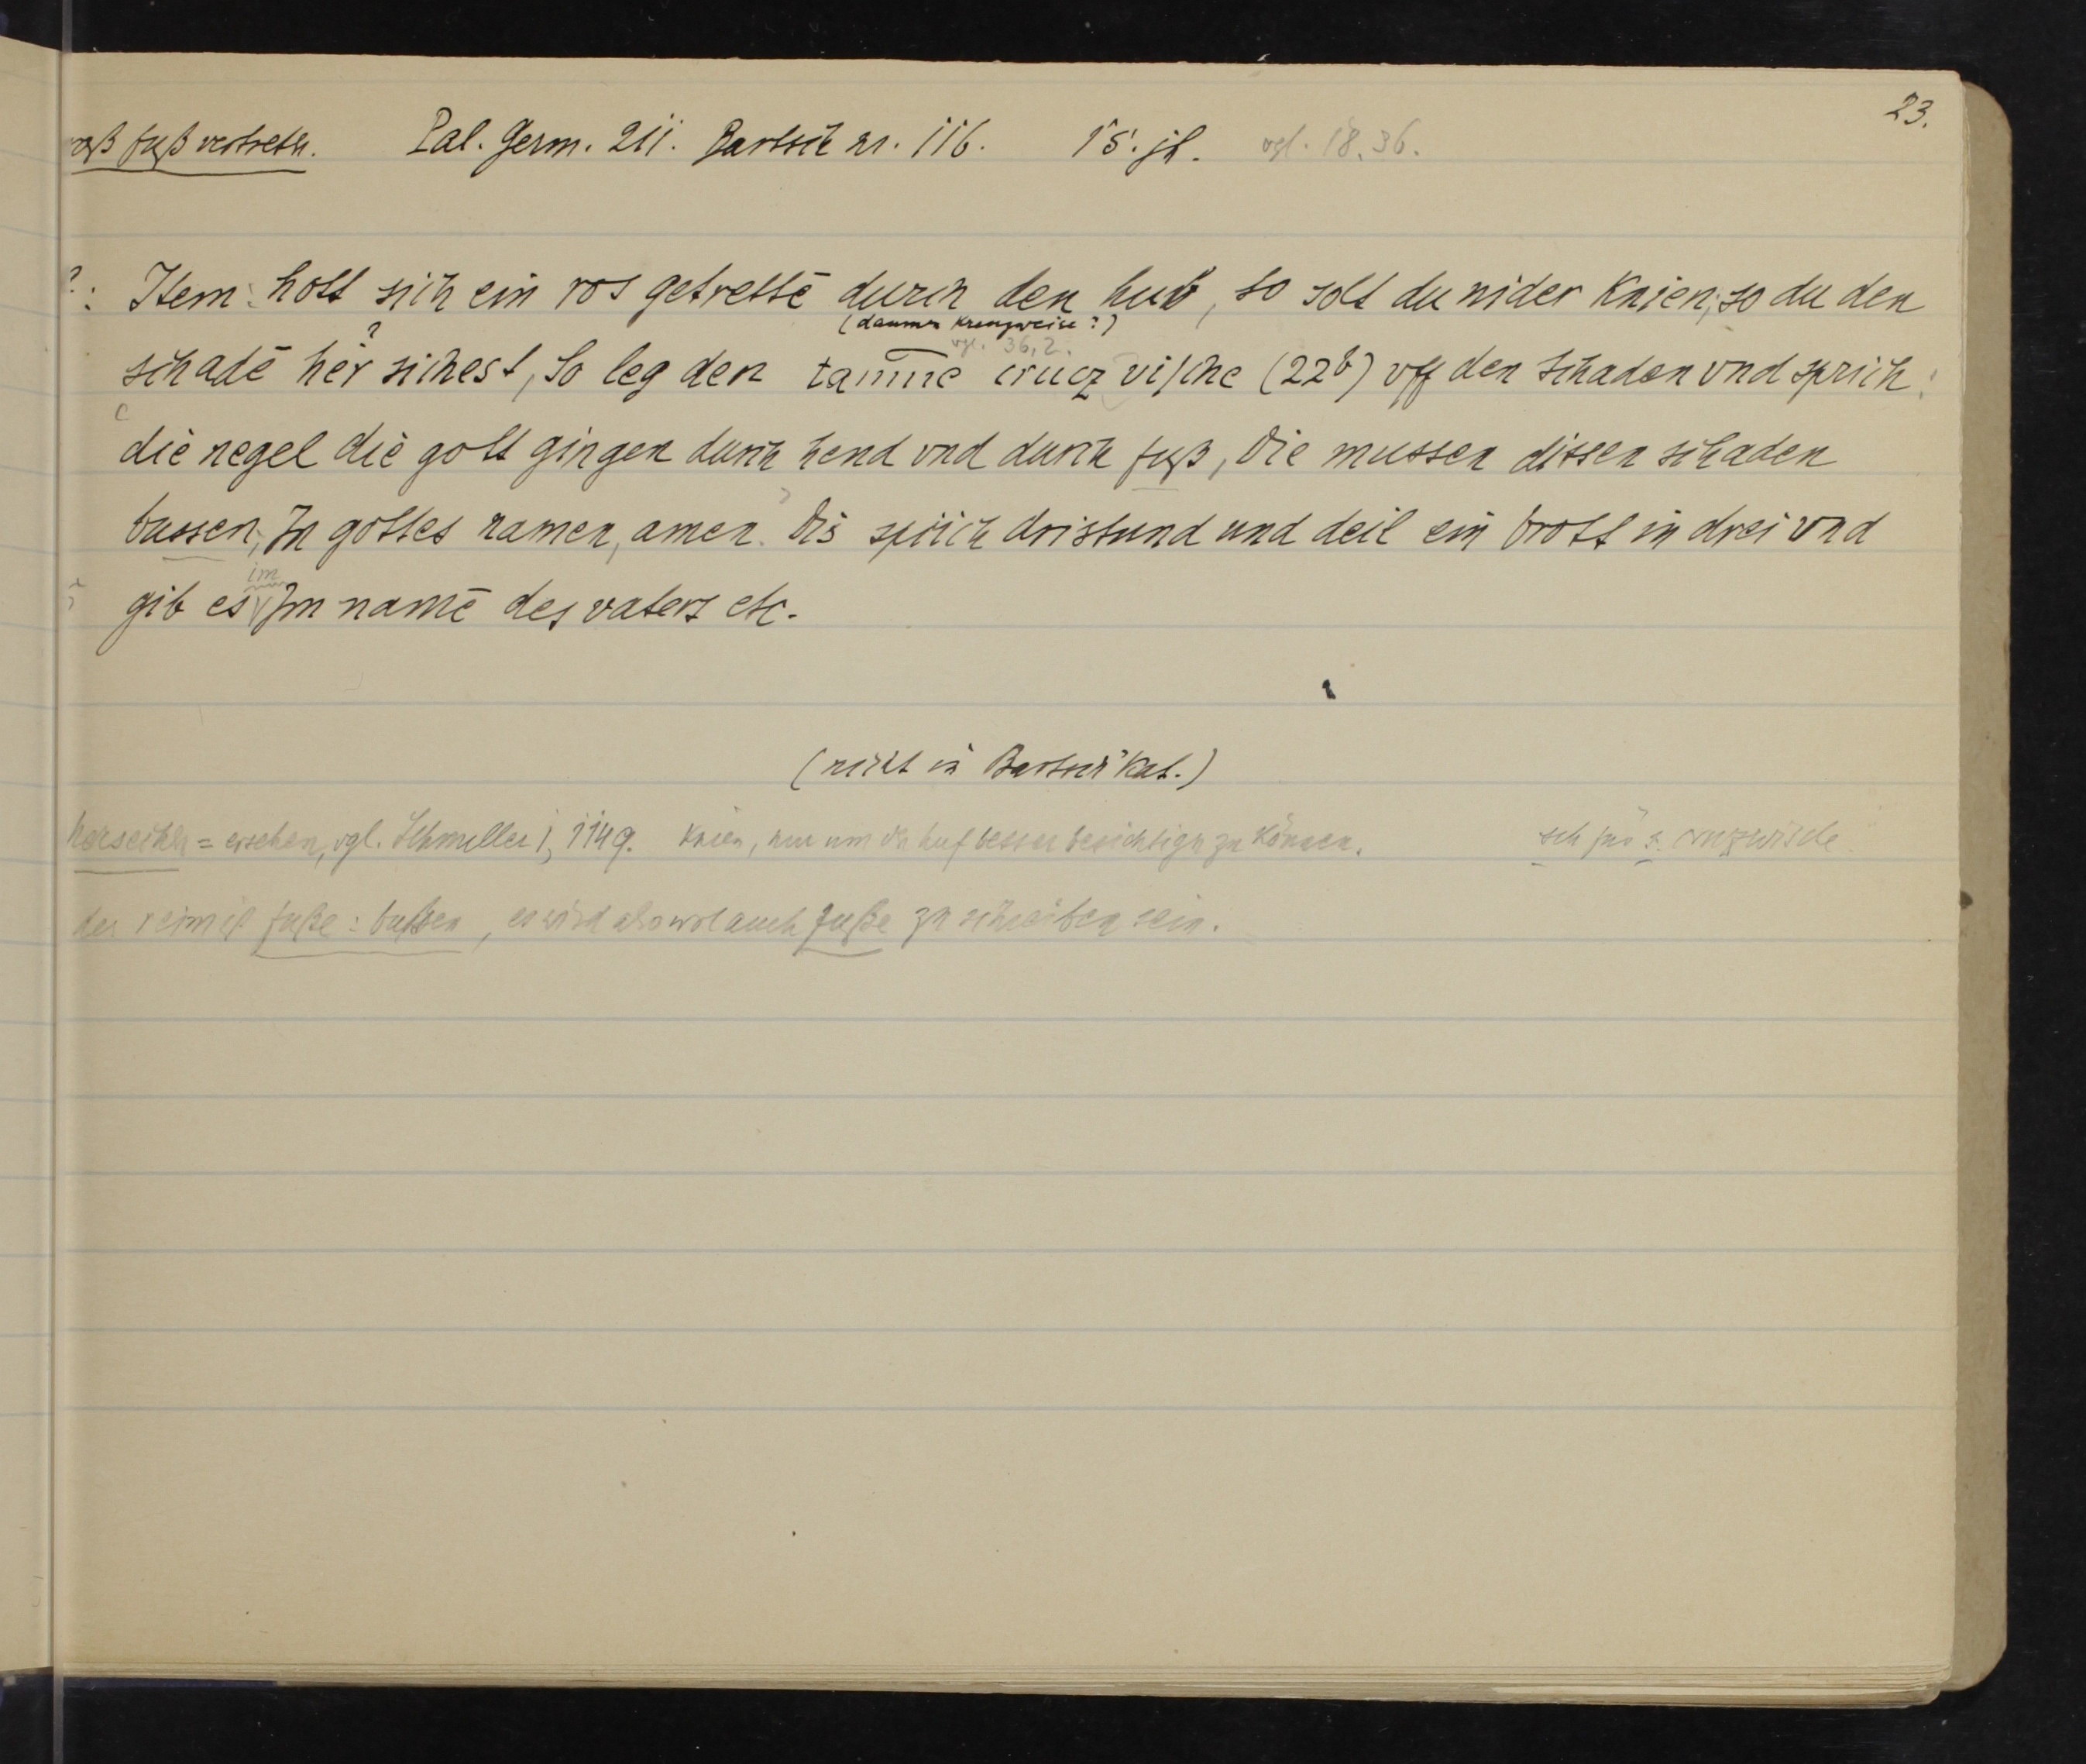 23.
roß fuß vertreten. Pal. Germ. 211. Bartsch nr. 116. 15. jh. vgl. 18. 36.
?: Item: hott sich ein ros getrettē durch den hub, so solt du nider knien, so du den
(daumen kreuzweise?)
vgl. 36,2.
schadē her sichest, So leg den crucz vische (22b) vff den schaden vnd sprich:
die negel die gott gingen durch hend vnd durch fuß, die mussen dissen schaden
bussen, In gottes namen, amen. Dis sprich dristund und deil ein brott in drei vnd
im
gib es Im namē des vaters etc.
(nicht in Bartsch' Kat.)
= ersehen, vgl. Schmeller 1, 1149. knien, nur um den huf besser besichtigen zu können. sch für s. cruczwische
der reim ist fuße: bußen, es wird also wol auch fuße zu schreiben sein.